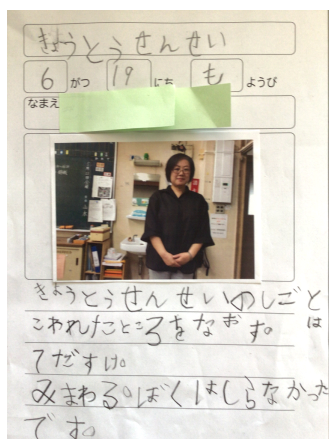 きょうとうせんせい
6 がつ 19 にち も ようび
なまえ
きょうとうせんせいのしごと
は
こわれたところをなおす。
てだすけ。
みまわる。ぼくはしらなかった
です。